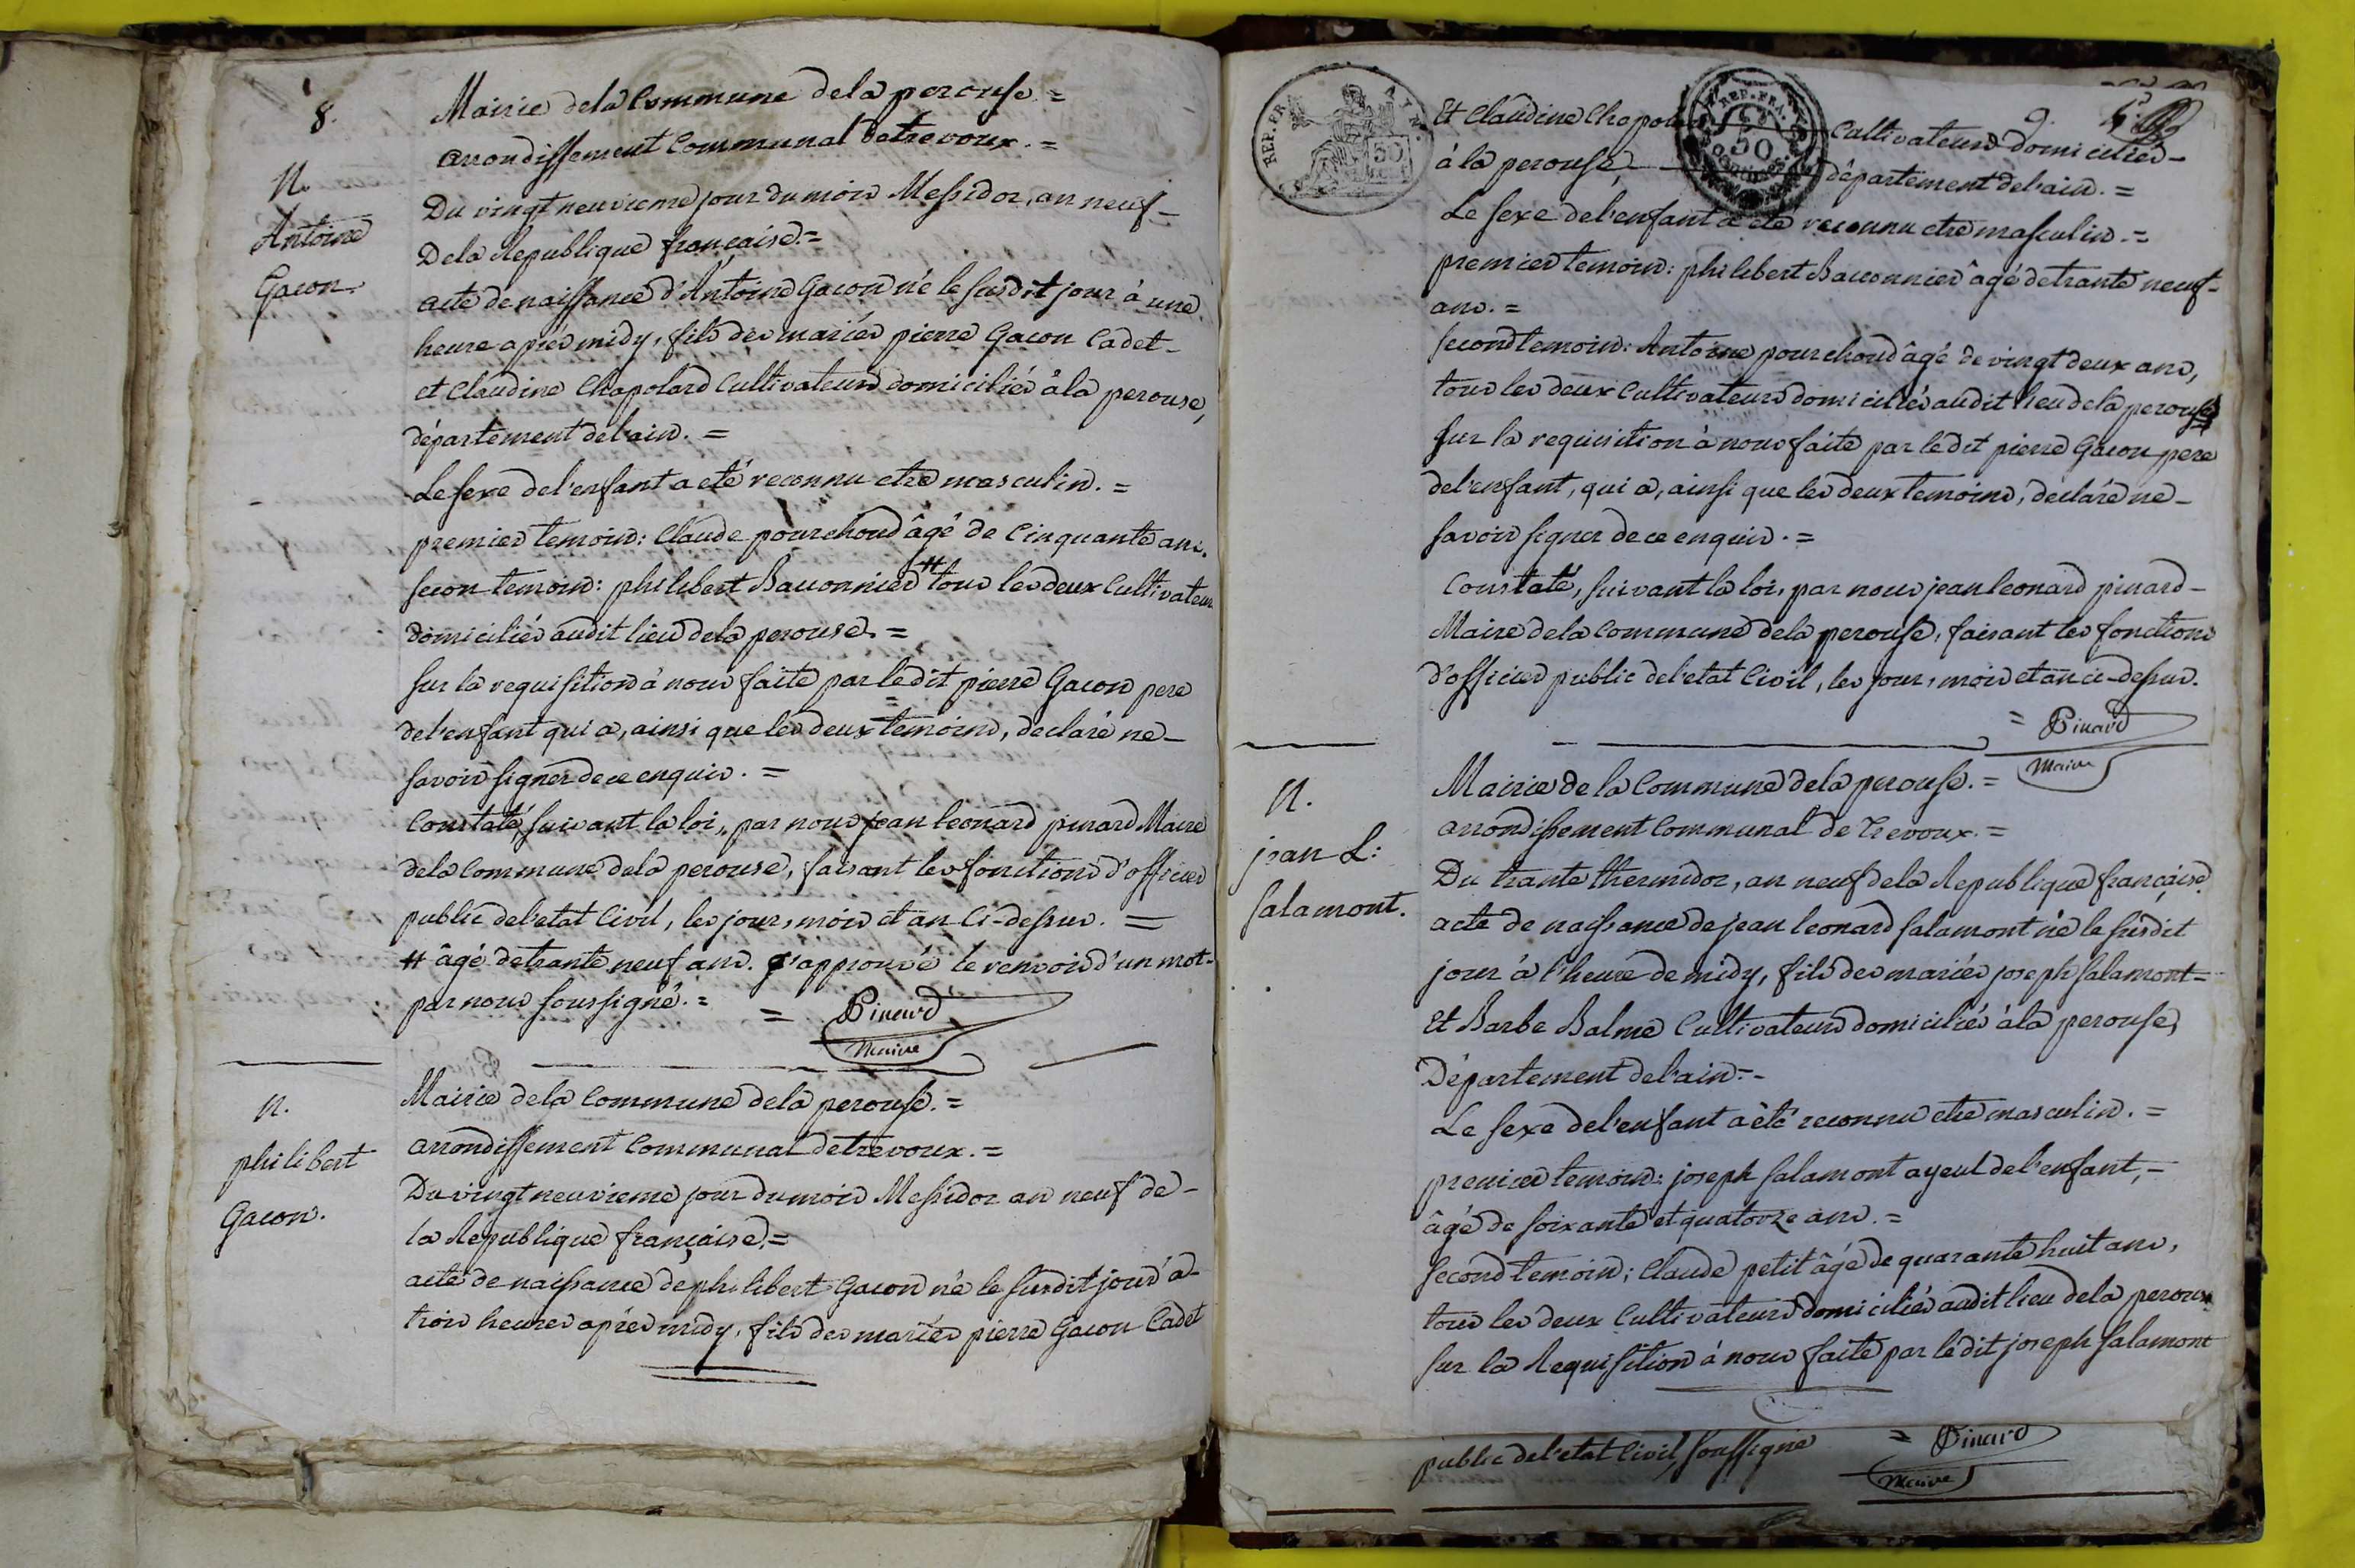 8.
Mairie dela Commune dela perouse =
arrondissement Communal detrevoux. =
N.
Antoine
Gacon.
Du vingt neuvieme jour du mois Messidor, an neuf-
Dela Republique française. =
acte de naissance d'Antoine Gacon né le susdit jour à une
heure après midy, fils des mariés pierre Gacon Cadet-
et Claudine Chapolard Cultivateurs domiciliés àla perouse,
département del'ain. =
Le sexe del'enfant a eté reconnu etre masculin. =
premier temoin: Claude pourchoud âgé de Cinquante ans.
secon temoin: philibert Bauonnier # tous les deux Cultivateurs
domiciliés audit lieu dela perouse. =
sur la requisition à nous faite par ledit pierre Gacon pere
del'enfant qui a, ainsi que les deux temoins, declaré ne-
savoir signer de ce enquis. =
Constaté suivant la loi, par nous jean leonard pinard Maire
dela Commune dela perouse, faisant les fonctions d'officier
public del'etat Civil, les jour, mois et an Ci-dessus. =
# âgé detrante neuf ans. J'approuvé le renvois d'un mot-
par nous soussigné. =
= Pinard
Maire
N.
philibert
Gacon.
Mairie dela Commune dela perouse. =
arrondissement Communal detrevoux. =
Du vingt neuvieme jour du mois Messidor an neuf de-
la Republique française. =
acte de naissance de philibert Gacon né le susdit jour à-
trois heures après midy, fils des mariés pierre Gacon Cadet
9.
REP. FRA.
50
REP. FRA.
50
Et Claudine Chapol Cultivateurs domiciliés-
à la perouse, département del'ain. =
Le sexe del'enfant a eté reconnu etre masculin. =
premier temoin: philibert Bauonnier âgé detrante neuf-
ans. =
second temoin: Antoine pourchoud âgé de vingt deux ans,
tous les deux Cultivateurs domiciliés audit lieu dela perouse
sur la requisition à nous faite par ledit pierre Gacon pere
del'enfant, qui a, ainsi que les deux temoins, déclaré ne-
savoir signer de ce enquis. =
Constaté, suivant la loi, par nous jean leonard pinard-
Maire dela Commune dela perouse, faisant les fonctions
d'officier public del'etat Civil, les jour, mois et an ci-dessus.
= Pinard
Maire
N.
jean L:
salamont.
Mairie de la Commune dela perouse. =
arrondissement Communal de Trevoux. =
Du trante thermidor, an neuf dela Republique française.
acte de naissance de jean leonard salamont né le susdit
jour à l'heure de midy, fils des mariés joseph salamont-
Et Barbe Balme Cultivateurs domiciliés àla perouse,
Département del'ain. =
Le sexe del'enfant a été reconnu etre masculin. =
premier temoin: joseph salamont ayeul del'enfant, -
âgé de soixante et quatorze ans. =
second temoin; Claude petit âgé de quarante huit ans,
tous les deux Cultivateurs domiciliés audit lieu dela perouse
sur la Requisition à nous faite par ledit joseph salamont
public del'etat Civil, soussigné = Pinard
Maire